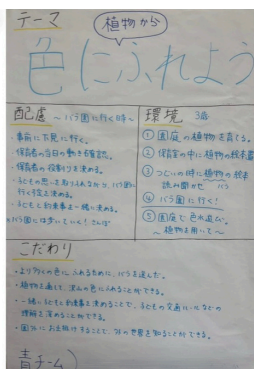 テーマ
植物から
色にふれよう
配慮 〜バラ園に行く時〜
・事前に下見に行く。
・保育者の当日の動きを確認。
・保育者の役割りを決める。
・子どもの思いを取り入れながら、バラ園に
行く予定を決める。
・子どもと約束事を一緒に決める。
※バラ園には歩いていく! さんぽ
環境 3歳
① 園庭の植物を育てる。
② 保育室の中に植物の絵本置
③ つどいの時に植物の絵本
読み聞かせ バラ
④ バラ園に行く!
⑤ 園庭で色水遊び。
〜植物を用いて〜
こだわり
・より多くの色にふれるために、バラを選んだ。
・植物を通して、沢山の色にふれることができる。
・一緒に約束事を決めることで、子どもの交通ルールなどの
理解を深めることができる。
・園外にお出掛けすることで、外の世界を知ることができる。
青チーム